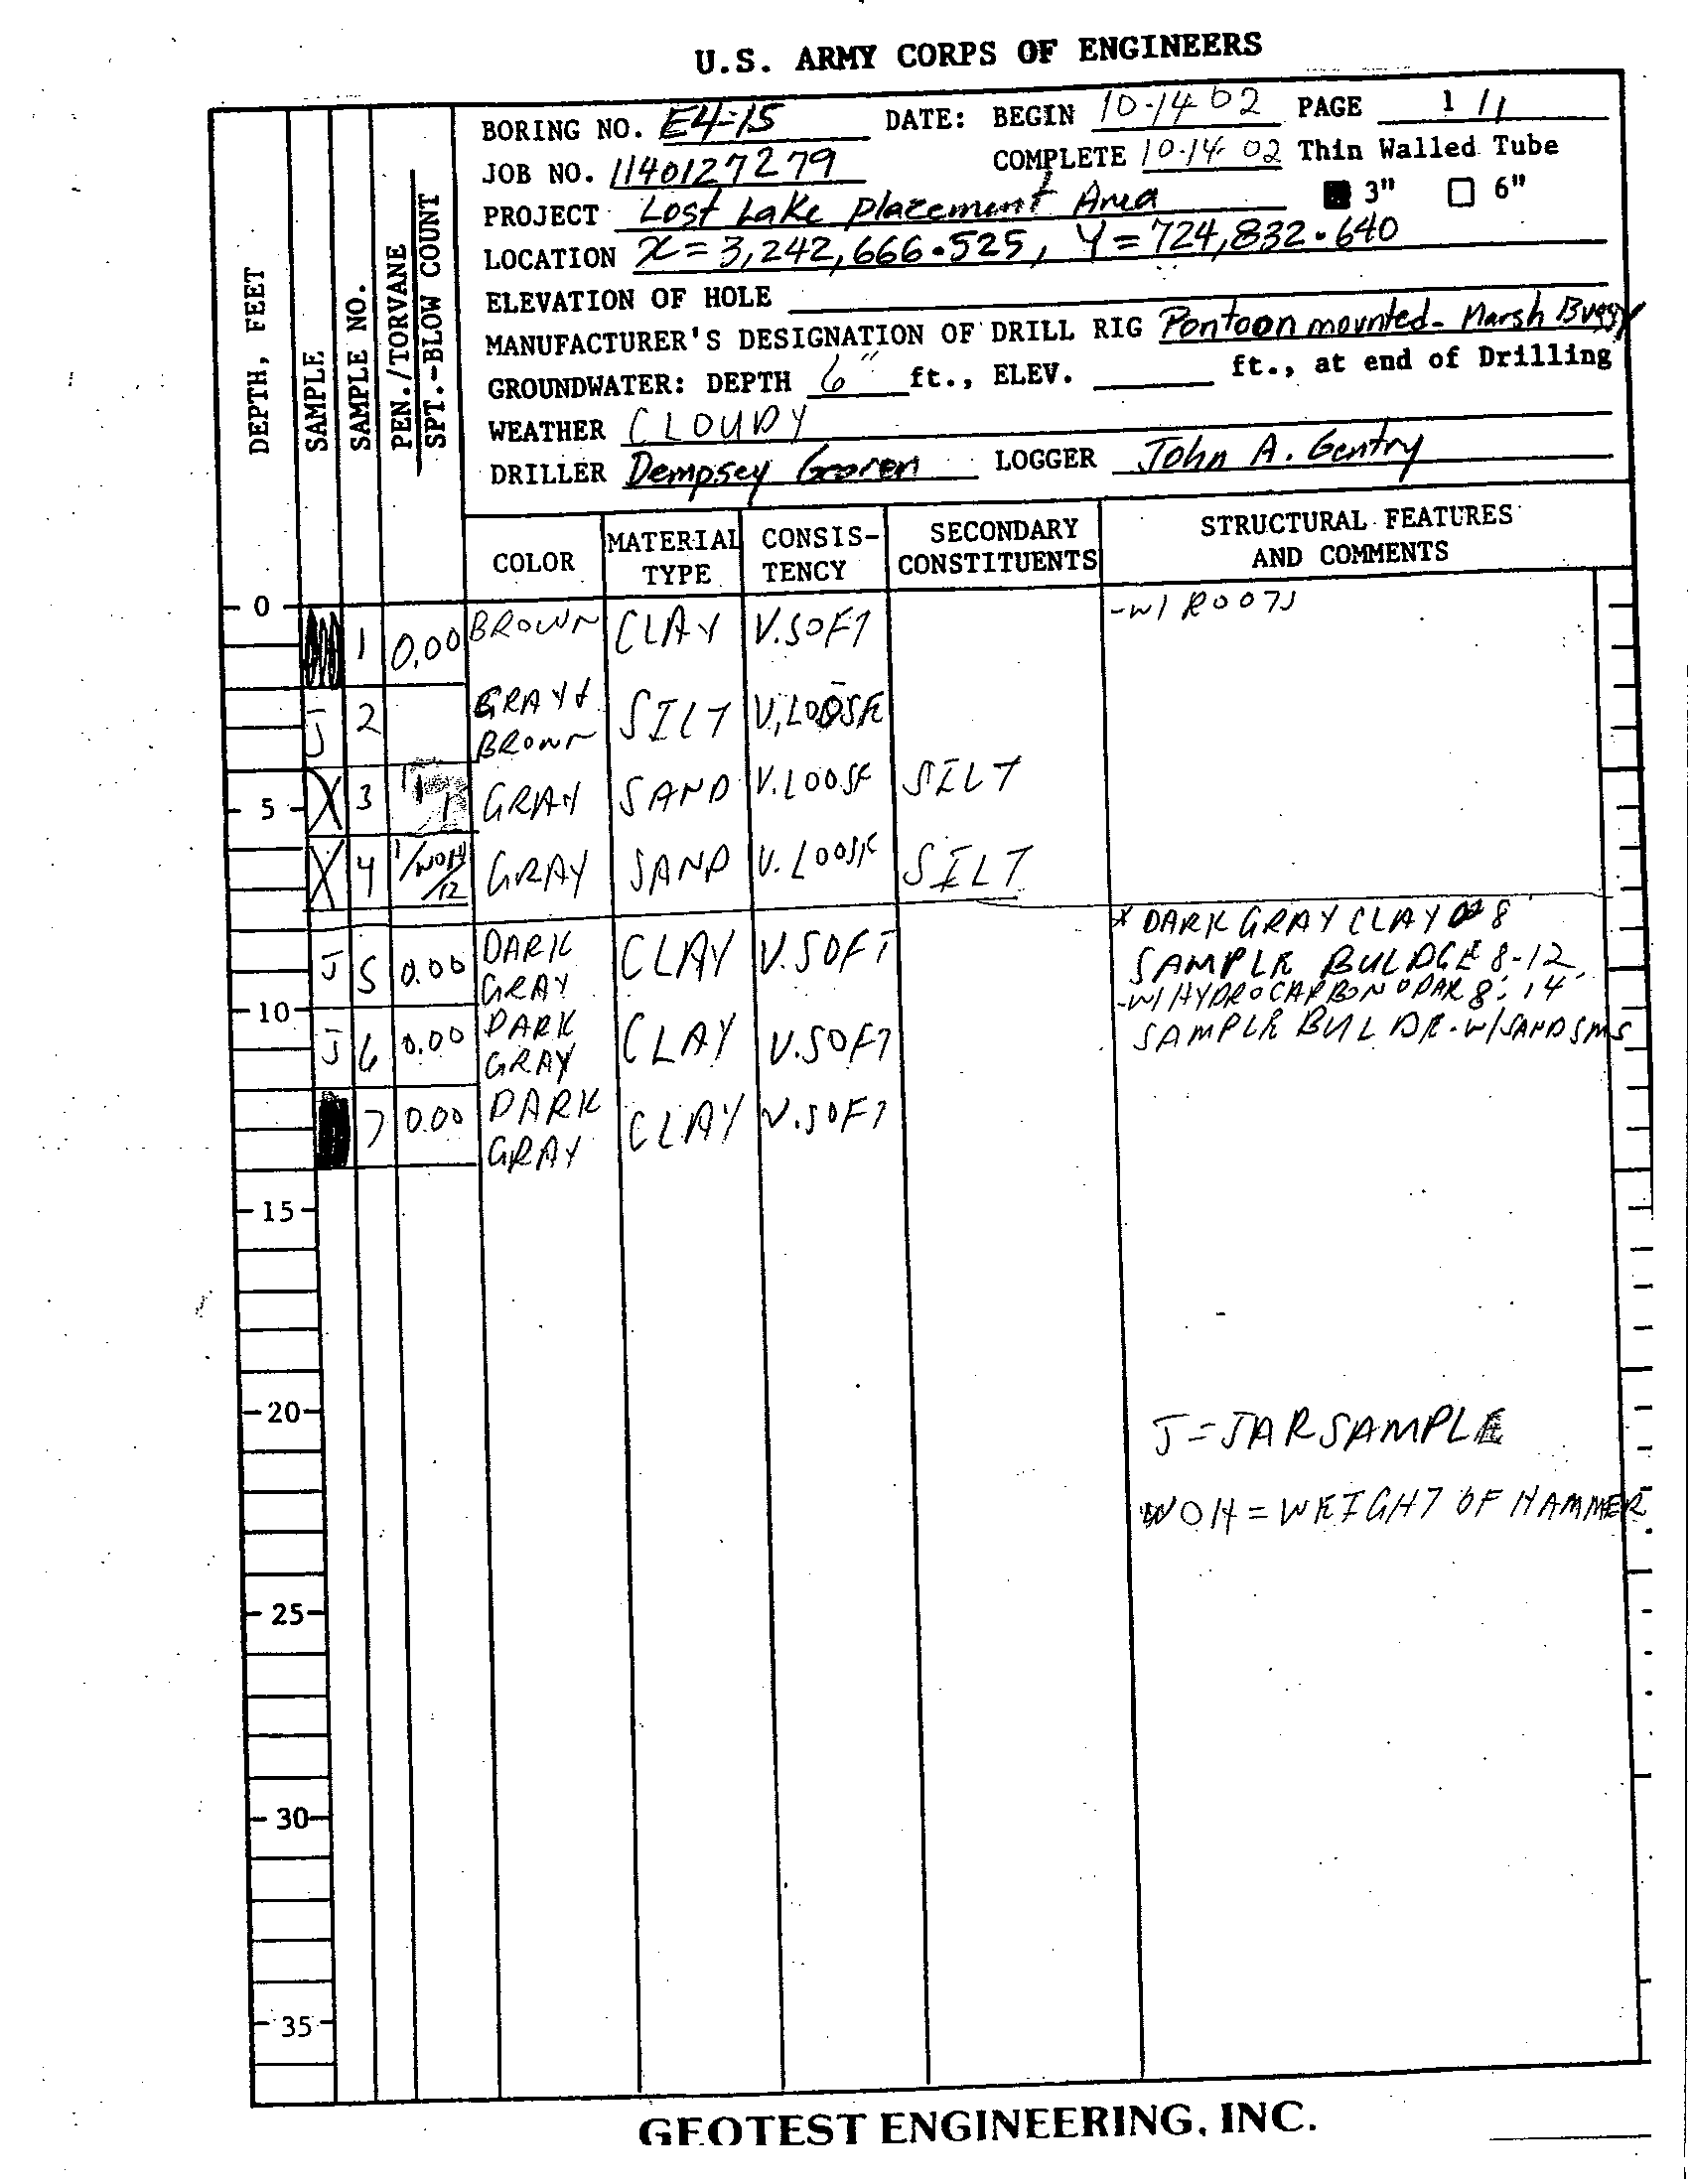 U.S. ARMY CORPS OF ENGINEERS
BORING NO. E4-15 DATE: BEGIN 10-14-02 PAGE 1 / 1
JOB NO. 1140127279 COMPLETE 10-14-02 Thin Walled Tube
PROJECT Lost Lake Placement Area 3" 6"
LOCATION X = 3,242,666.525, Y = 724,832.640
ELEVATION OF HOLE
MANUFACTURER'S DESIGNATION OF DRILL RIG Pontoon mounted- Marsh Buggy
GROUNDWATER: DEPTH 6" ft., ELEV. ft., at end of Drilling
WEATHER CLOUDY
DRILLER Dempsey LOGGER John A. Gentry
DEPTH, FEET
SAMPLE
SAMPLE NO.
PEN./TORVANE
SPT.-BLOW COUNT
COLOR MATERIAL TYPE CONSIS-TENCY SECONDARY CONSTITUENTS STRUCTURAL FEATURES AND COMMENTS
0
1 0.00 BROWN CLAY V.SOFT -W/ ROOTS
J 2 GRAY & BROWN SILT V.LOOSE
5 X 3 GRAY SAND V.LOOSE SILT
X 4 1/WOH/12 GRAY SAND V.LOOSE SILT
* DARK GRAY CLAY 8'
J 5 0.00 DARK GRAY CLAY V.SOFT SAMPLE BULDGE 8-12
-W/ HYDROCARBON ODAR 8'-14'
10
J 6 0.00 DARK GRAY CLAY V.SOFT SAMPLE BULDE-W/SAND SMS
7 0.00 DARK GRAY CLAY V.SOFT
15
20
J = JAR SAMPLE
WOH = WEIGHT OF HAMMER
25
30
35
GEOTEST ENGINEERING, INC.